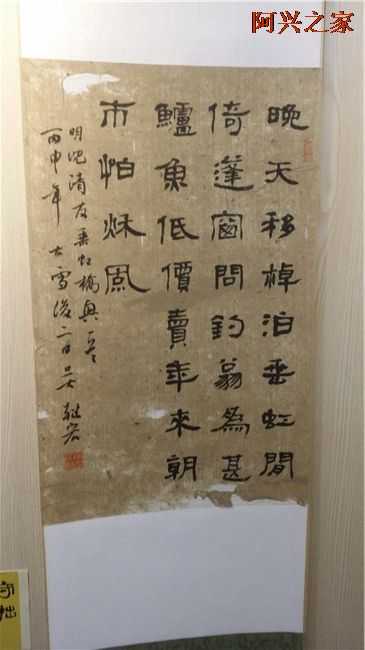 阿兴之家
晚天移棹泊垂虹閒
倚蓬窗問釣翁爲甚
鱸魚低價賣年來朝
市怕秌風
明沈清友垂虹橋
丙申年大雪後二日
守拙